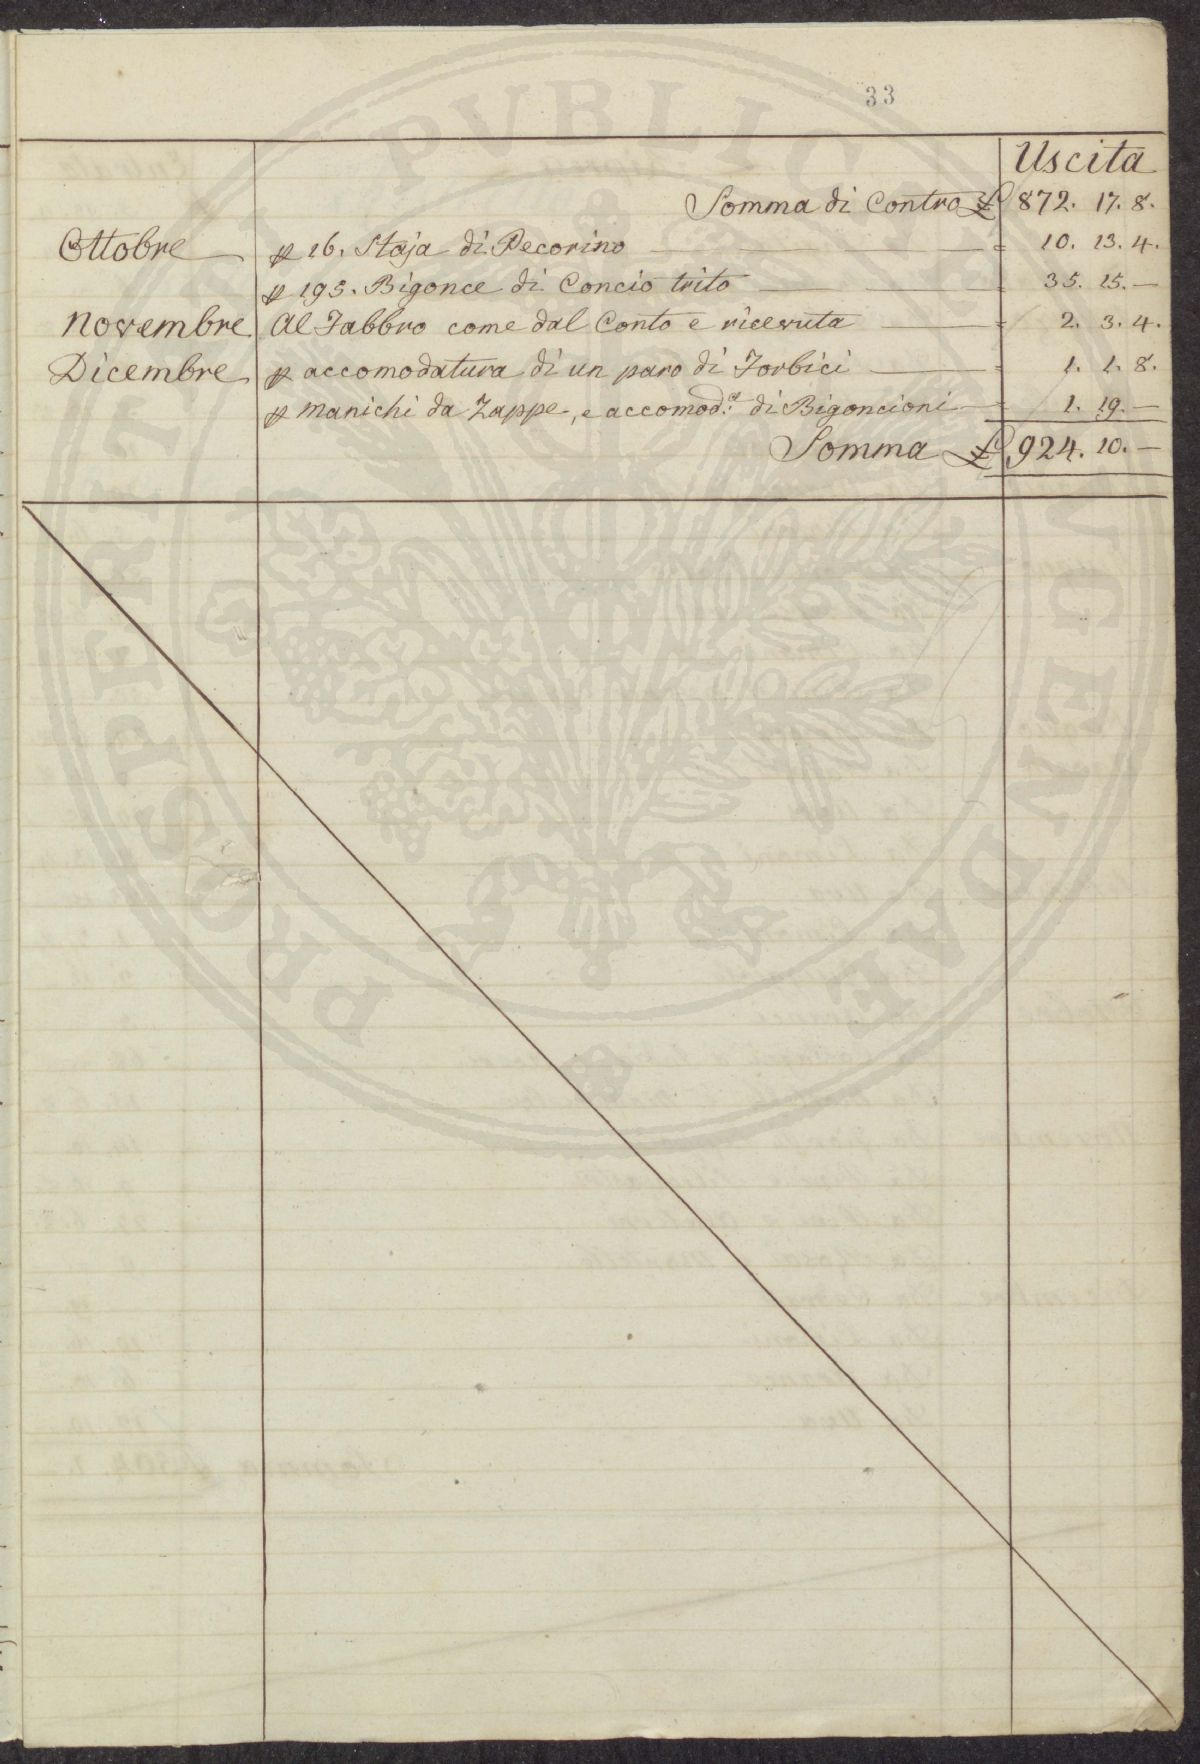 33
Uscita
Somma di Contro £ 872. 17. 8.
Ottobre p 16. Staja di Pecorino — = 10. 13. 4.
p 195. Bigonce di Concio trito — = 35. 15. —
Novembre Al Fabbro come dal Conto e ricevuta — = 2. 3. 4.
Dicembre p accomodatura di un paro di Forbici — = 1. 1. 8.
p manichi da Zappe, e accomod.a di Bigoncioni — = 1. 19. —
Somma £ 924. 10. —
PROSPERITATI PUBLICAE AUGENDAE